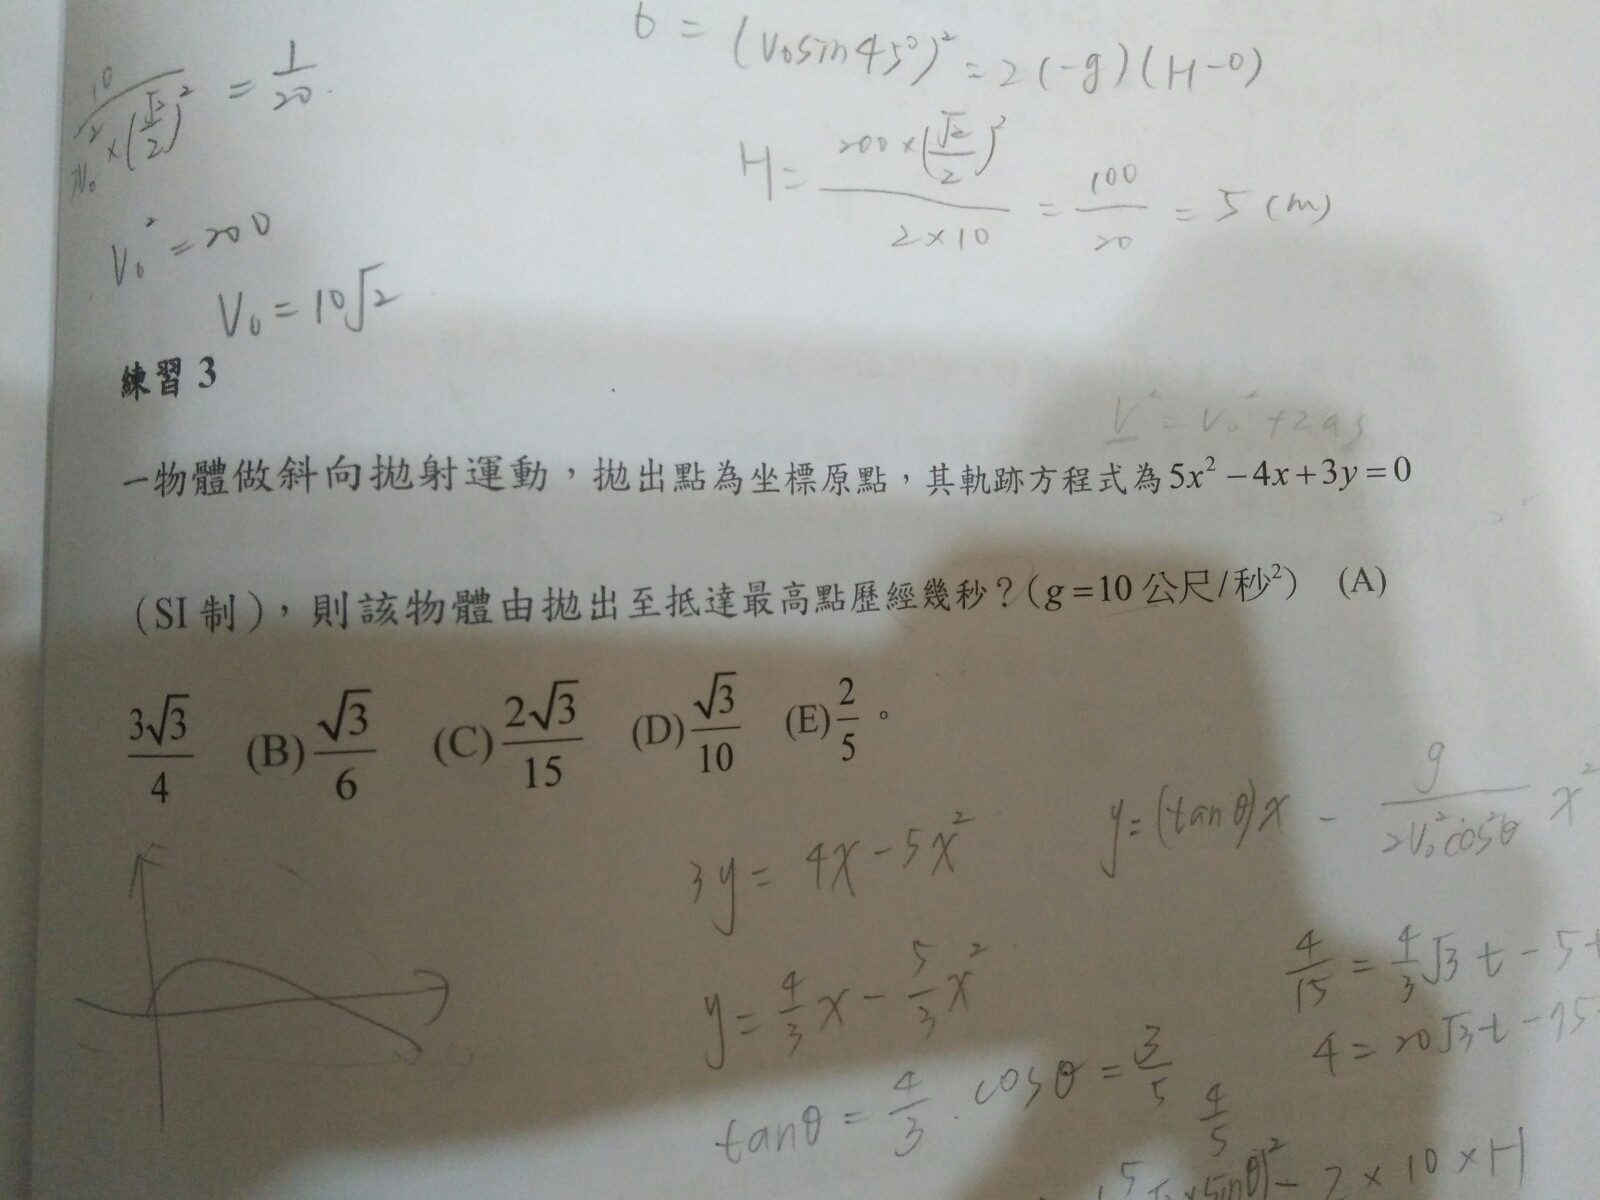 6 = (V₀sin45°)² = 2(-g)(H-0)
10 / 2V₀² × (√2/2)² = 1/20.
H = 200×(√2/2)² / 2×10 = 100/20 = 5 (m)
V₀² = 200
V₀ = 10√2
練習 3
V² = V₀² + 2as
一物體做斜向拋射運動，拋出點為坐標原點，其軌跡方程式為 5x² − 4x + 3y = 0
（SI 制），則該物體由拋出至抵達最高點歷經幾秒？(g = 10 公尺/秒²) (A)
3√3/4 (B) √3/6 (C) 2√3/15 (D) √3/10 (E) 2/5 。
y = (tanθ)x − g/2V₀²cos²θ x²
3y = 4x − 5x²
4/15 = 4/3 √3 t − 5t
y = 4/3 x − 5/3 x²
4 = 20√3t − 15
tanθ = 4/3 . cosθ = 3/5
4/5
×sinθ)² − 2×10×H